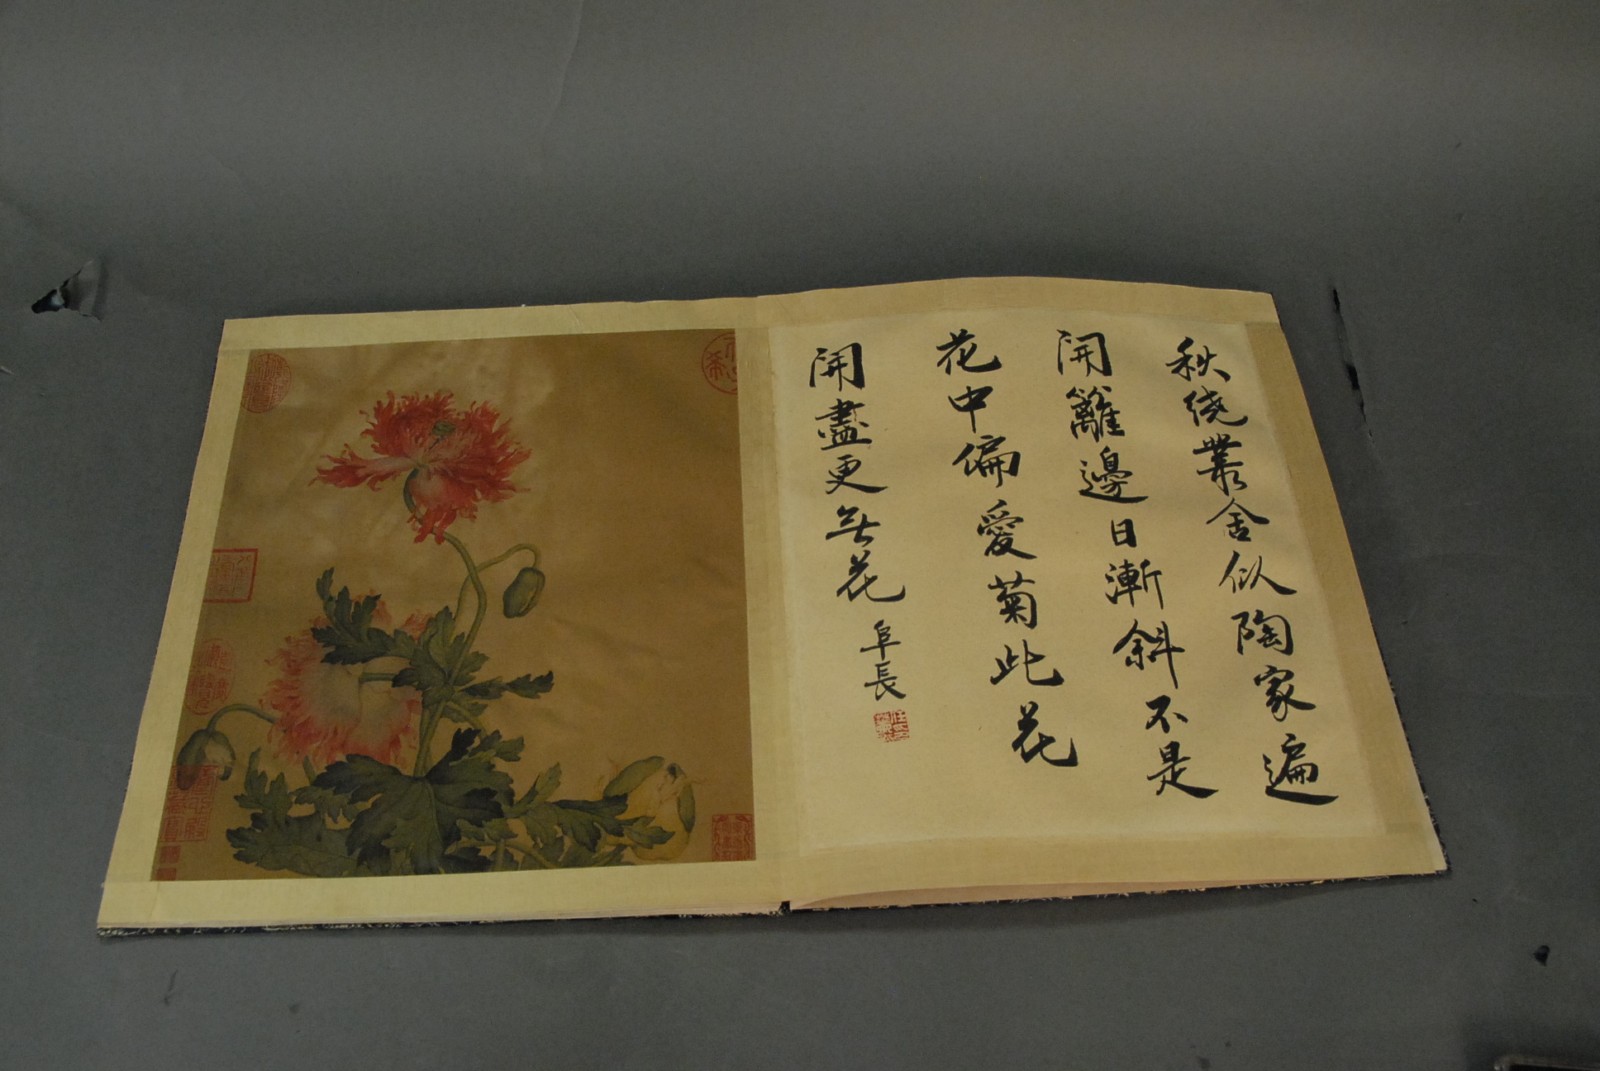 秋绕叢舍似陶家遍
開籬邊日漸斜不是
花中偏愛菊此花
開盡更无花
阜長